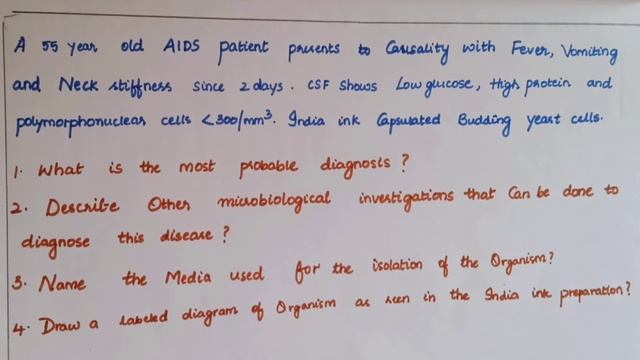 A 55 year old AIDS patient presents to Causality with Fever, Vomiting
and Neck stiffness since 2 days. CSF shows Low glucose, High protein and
polymorphonuclear cells <300/mm³. India ink Capsulated Budding yeast cells.
1. What is the most probable diagnosis?
2. Describe Other microbiological investigations that Can be done to
diagnose this disease?
3. Name the Media used for the isolation of the Organism?
4. Draw a labeled diagram of Organism as seen in the India ink preparation?